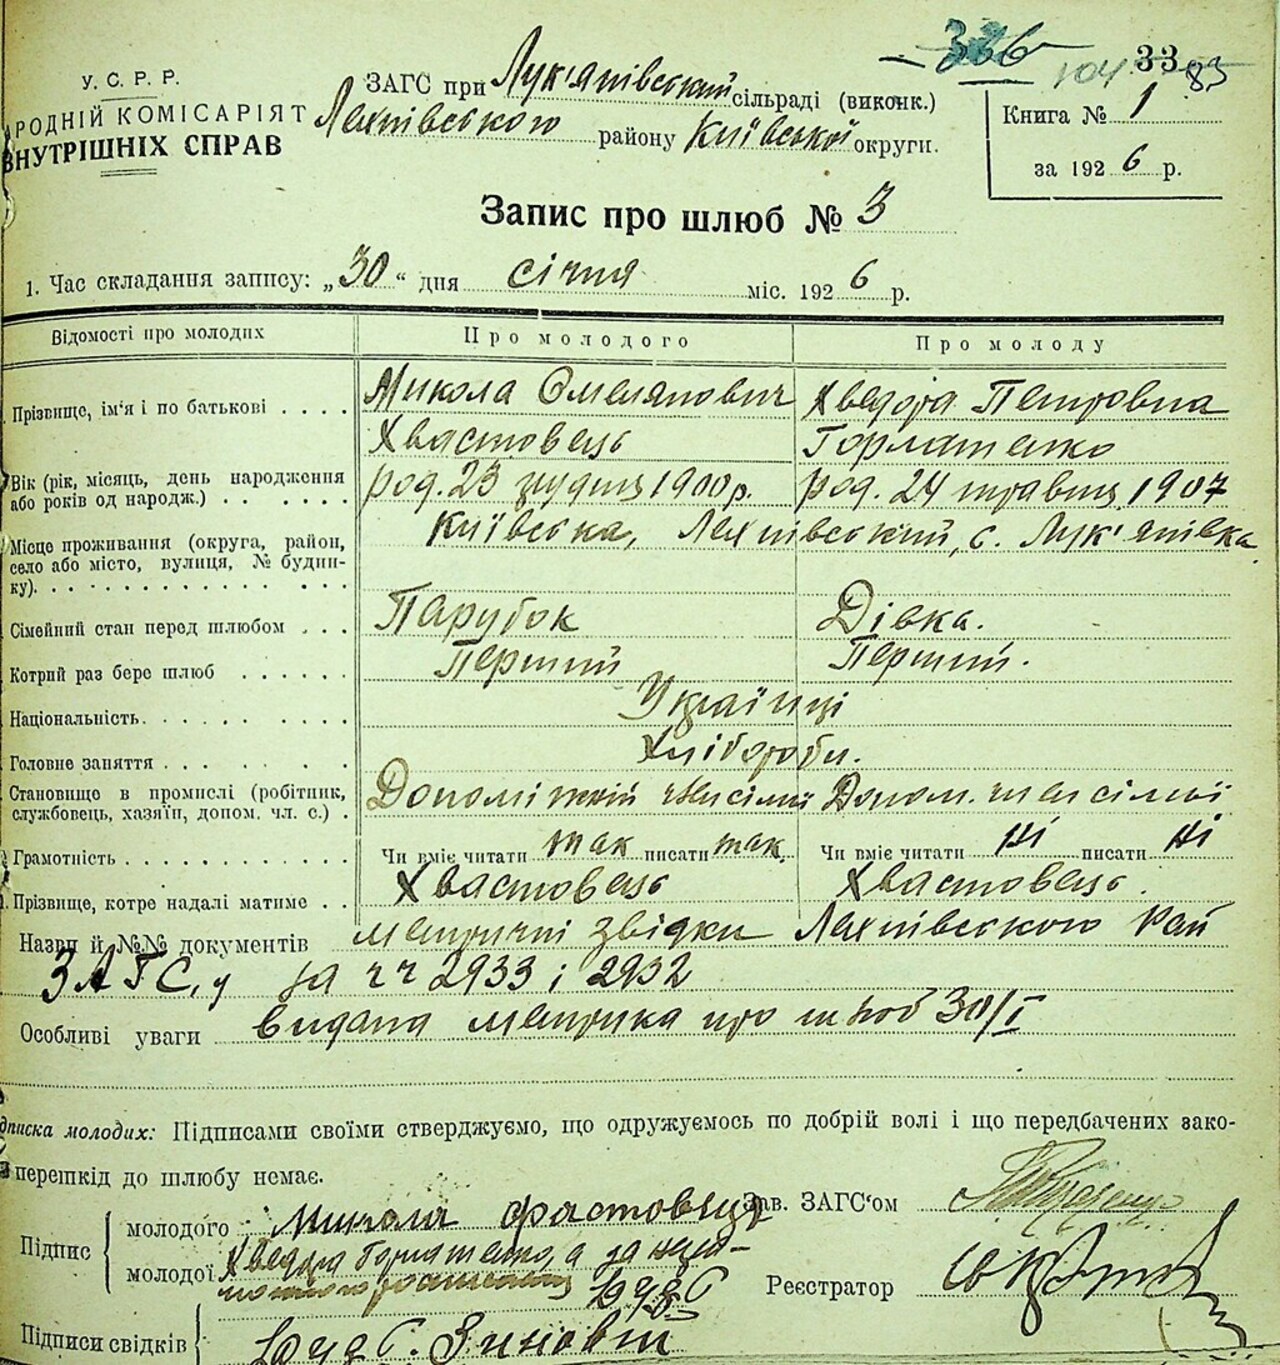 336
104
33 83
У. С. Р. Р.
НАРОДНІЙ КОМІСАРІЯТ
ВНУТРІШНІХ СПРАВ
ЗАГС при Лук'янівський сільраді (виконк.)
Ляхнівського району Київської округи.
Книга № 1
за 1926 р.
Запис про шлюб № 3
1. Час складання запису: „30“ дня січня міс. 1926 р.
Відомості про молодих
Про молодого
Про молоду
Прізвище, ім'я і по батькові . . . .
Микола Омелянович
Хвастовець
Хведора Петровна
Горлатенко
Вік (рік, місяць, день народження
або років од народж.) . . . . . .
род. 23 грудня 1900 р.
род. 24 травня 1907
Місце проживання (округа, район,
село або місто, вулиця, № будин-
ку). . . . . . . . . . . . . .
Київська, Ляхнівський, с. Лук'янівка.
Сімейний стан перед шлюбом . . .
Парубок
Дівка.
Котрий раз бере шлюб . . . . . .
Перший
Перший.
Національність. . . . . . . . . .
Українці
Головне заняття . . . . . . . .
Хлібороби.
Становище в промислі (робітник,
службовець, хазяїн, допом. чл. с.) .
Допоміжний член сімьї
Допом. член сімьї
Грамотність . . . . . . . . . . . .
Чи вміє читати так писати так.
Чи вміє читати ні писати ні
Прізвище, котре надалі матиме . .
Хвастовець
Хвастовець.
Назви й №№ документів метричні звідки Ляхнівського Рай
ЗАГС,у за чч 2933 і 2932
Особливі уваги видана метрика про шлюб 30/I
дписка молодих: Підписами своїми стверджуємо, що одружуємось по добрій волі і що передбачених зако-
перешкід до шлюбу немає.
Підпис
молодого Микола Фастовець
молодої Хведора Горлатенко, а за неї
Зав. ЗАГС'ом
Реєстратор
Підписи свідків